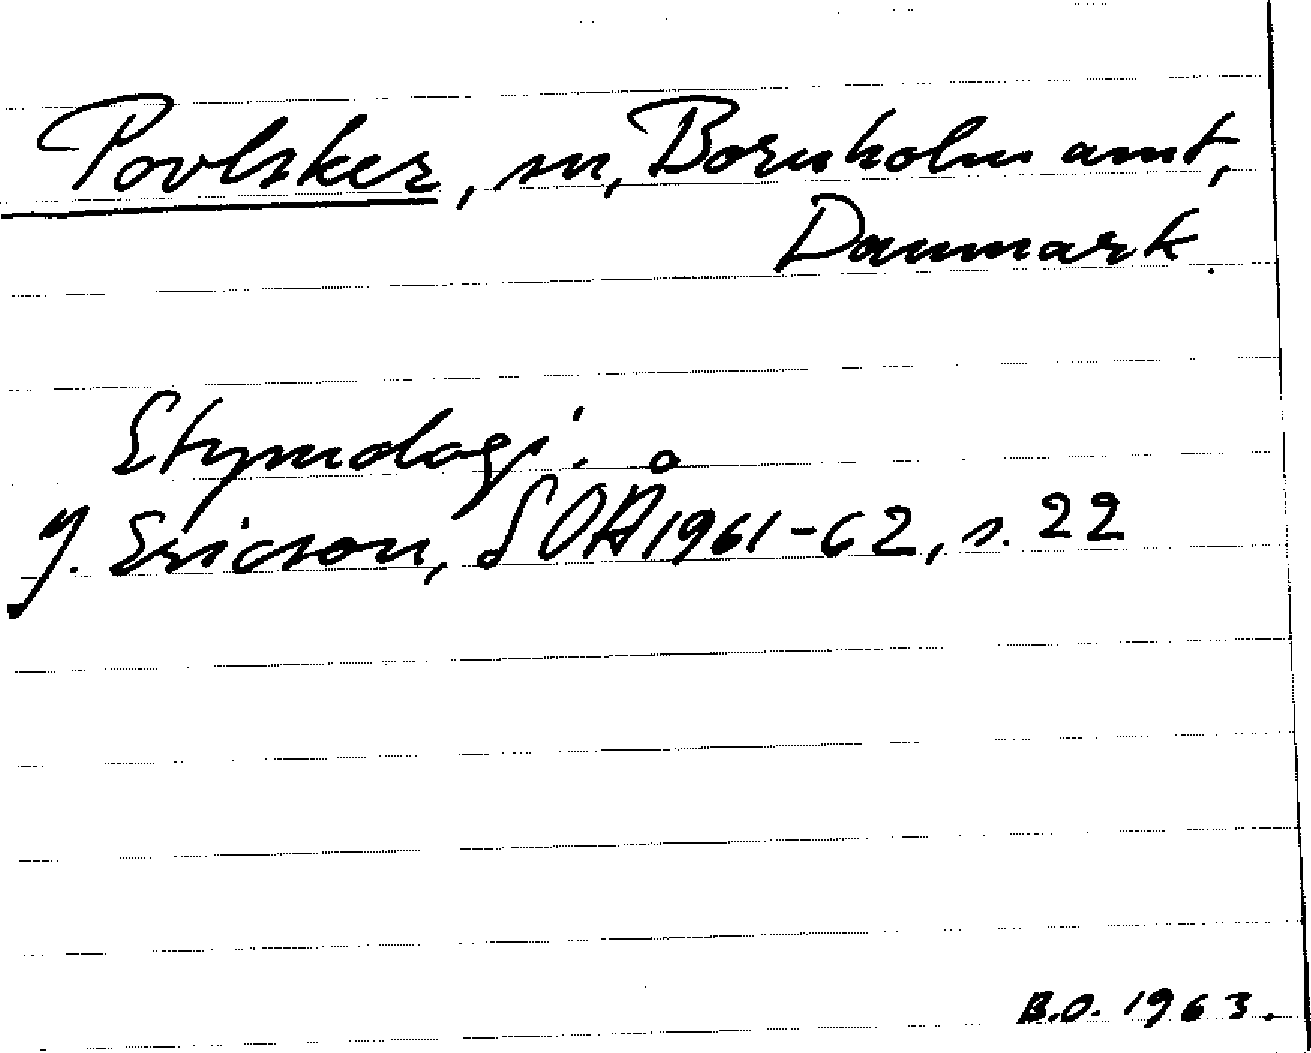 Povlsker, sn, Bornholm amt,
Danmark.
Etymologi:
G. Ericson, SOÅ 1961-62, s. 22
B.O. 1963.